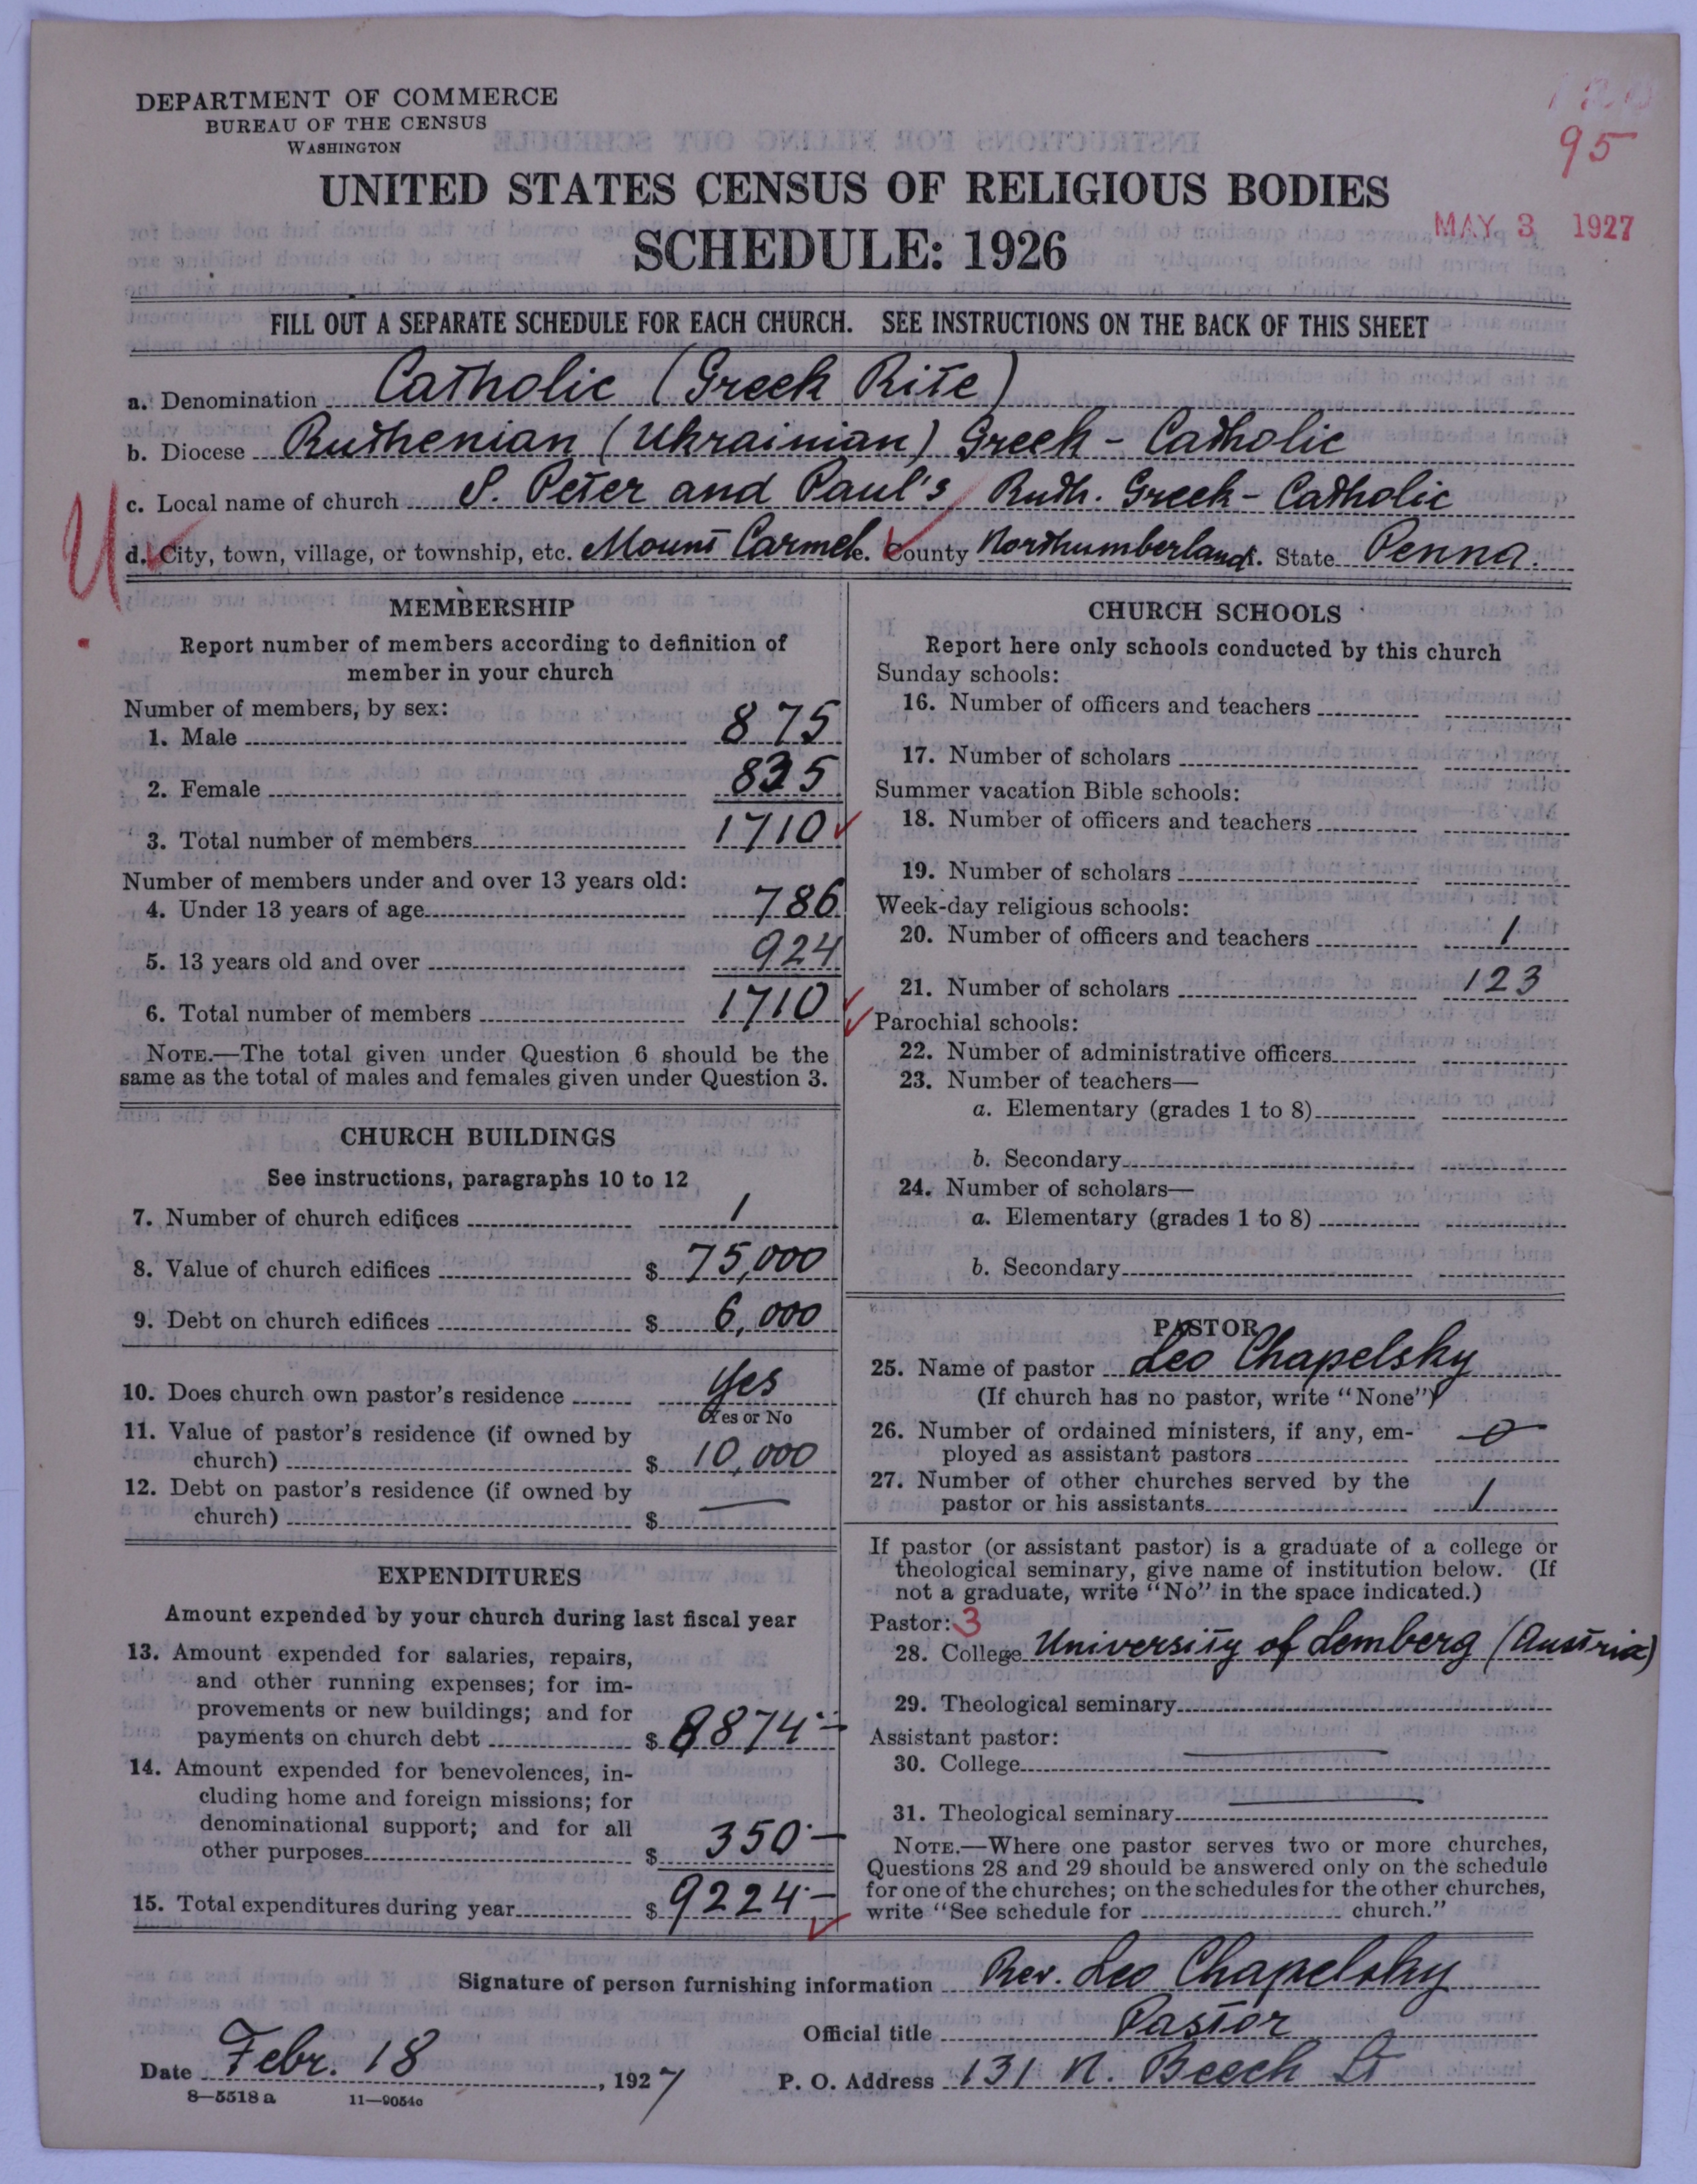 DEPARTMENT OF COMMERCE
BUREAU OF THE CENSUS
WASHINGTON
95
UNITED STATES CENSUS OF RELIGIOUS BODIES
SCHEDULE: 1926
MAY 3 1927
FILL OUT A SEPARATE SCHEDULE FOR EACH CHURCH. SEE INSTRUCTIONS ON THE BACK OF THIS SHEET
a. Denomination Catholic (Greek Rite)
b. Diocese Ruthenian (Ukrainian) Greek-Catholic
c. Local name of church S. Peter and Paul's Ruth. Greek-Catholic
U
d. City, town, village, or township, etc. Mount Carmel. County Northumberland. State Penna.
MEMBERSHIP
Report number of members according to definition of
member in your church
Number of members, by sex:
1. Male 875
2. Female 835
3. Total number of members 1710
Number of members under and over 13 years old:
4. Under 13 years of age 786
5. 13 years old and over 924
6. Total number of members 1710
NOTE.—The total given under Question 6 should be the
same as the total of males and females given under Question 3.
CHURCH BUILDINGS
See instructions, paragraphs 10 to 12
7. Number of church edifices 1
8. Value of church edifices $ 75,000
9. Debt on church edifices $ 6,000
10. Does church own pastor's residence Yes
Yes or No
11. Value of pastor's residence (if owned by
church) $ 10,000
12. Debt on pastor's residence (if owned by
church) $ —
EXPENDITURES
Amount expended by your church during last fiscal year
13. Amount expended for salaries, repairs,
and other running expenses; for im-
provements or new buildings; and for
payments on church debt $ 8874.—
14. Amount expended for benevolences, in-
cluding home and foreign missions; for
denominational support; and for all
other purposes $ 350.—
15. Total expenditures during year $ 9224.—
CHURCH SCHOOLS
Report here only schools conducted by this church
Sunday schools:
16. Number of officers and teachers
17. Number of scholars
Summer vacation Bible schools:
18. Number of officers and teachers
19. Number of scholars
Week-day religious schools:
20. Number of officers and teachers 1
21. Number of scholars 123
Parochial schools:
22. Number of administrative officers
23. Number of teachers—
a. Elementary (grades 1 to 8)
b. Secondary
24. Number of scholars—
a. Elementary (grades 1 to 8)
b. Secondary
PASTOR
25. Name of pastor Leo Chapelsky
(If church has no pastor, write "None")
26. Number of ordained ministers, if any, em-
ployed as assistant pastors 0
27. Number of other churches served by the
pastor or his assistants 1
If pastor (or assistant pastor) is a graduate of a college or
theological seminary, give name of institution below. (If
not a graduate, write "No" in the space indicated.)
Pastor: 3
28. College University of Lemberg (Austria)
29. Theological seminary
Assistant pastor:
30. College —
31. Theological seminary —
NOTE.—Where one pastor serves two or more churches,
Questions 28 and 29 should be answered only on the schedule
for one of the churches; on the schedules for the other churches,
write "See schedule for church."
Signature of person furnishing information Rev. Leo Chapelsky
Official title Pastor
Date Febr. 18, 1927
P. O. Address 131 N. Beech St
8—5518 a 11—9054c